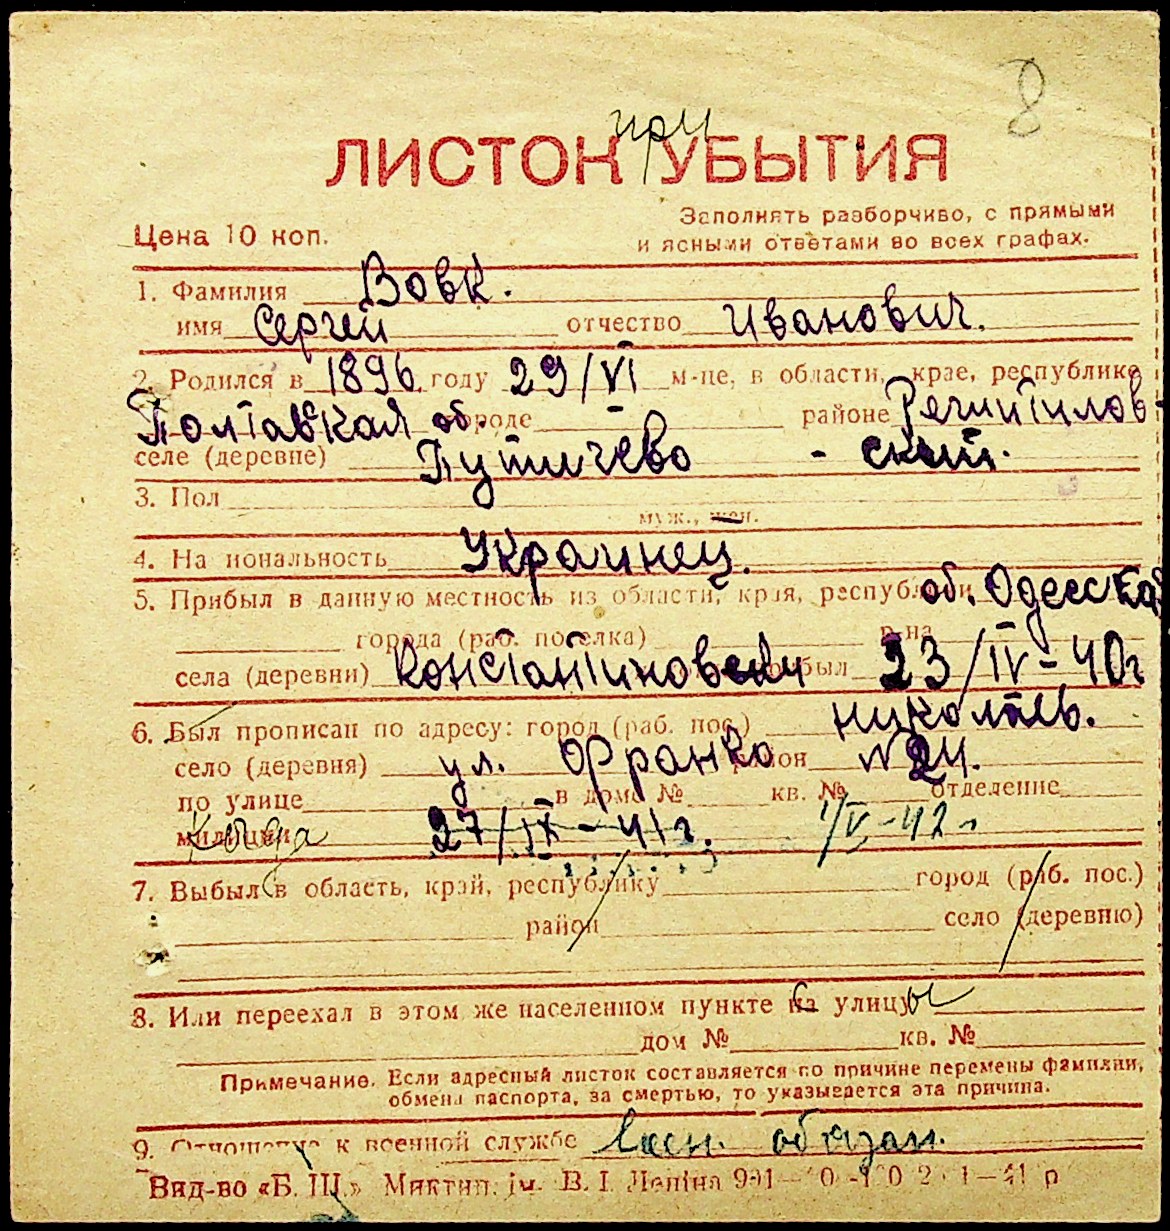 8
при
ЛИСТОК УБЫТИЯ
Заполнять разборчиво, с прямыми
Цена 10 коп. и ясными ответами во всех графах.
1. Фамилия Вовк.
имя Сергей отчество Иванович.
2. Родился в 1896 году 29/VI м-це, в области, крае, республике
Полтавская об. городе районе Решитилов-
селе (деревне) Путичево - ский.
3. Пол
муж., жен.
4. На иональность Украинец.
5. Прибыл в данную местность из области, края, республики об. Одесская
города (раб. поселка) р-на
села (деревни) Константиновски прибыл 23/IV-40г
6. Был прописан по адресу: город (раб. пос.) николаев.
село (деревня) ул. Франко район №24.
по улице в доме № кв. № отделение
милиции 27/IX-41г. 1/V-42г
7. Выбыл в область, край, республику город (раб. пос.)
район село (деревню)
8. Или переехал в этом же населенном пункте на улицу
дом № кв. №
Примечание. Если адресный листок составляется по причине перемены фамилии,
обмена паспорта, за смертью, то указывается эта причина.
9. Отношение к военной службе Воен. обязан.
Вид-во «Б. Ш.» Миктип. ім. В. І. Леніна